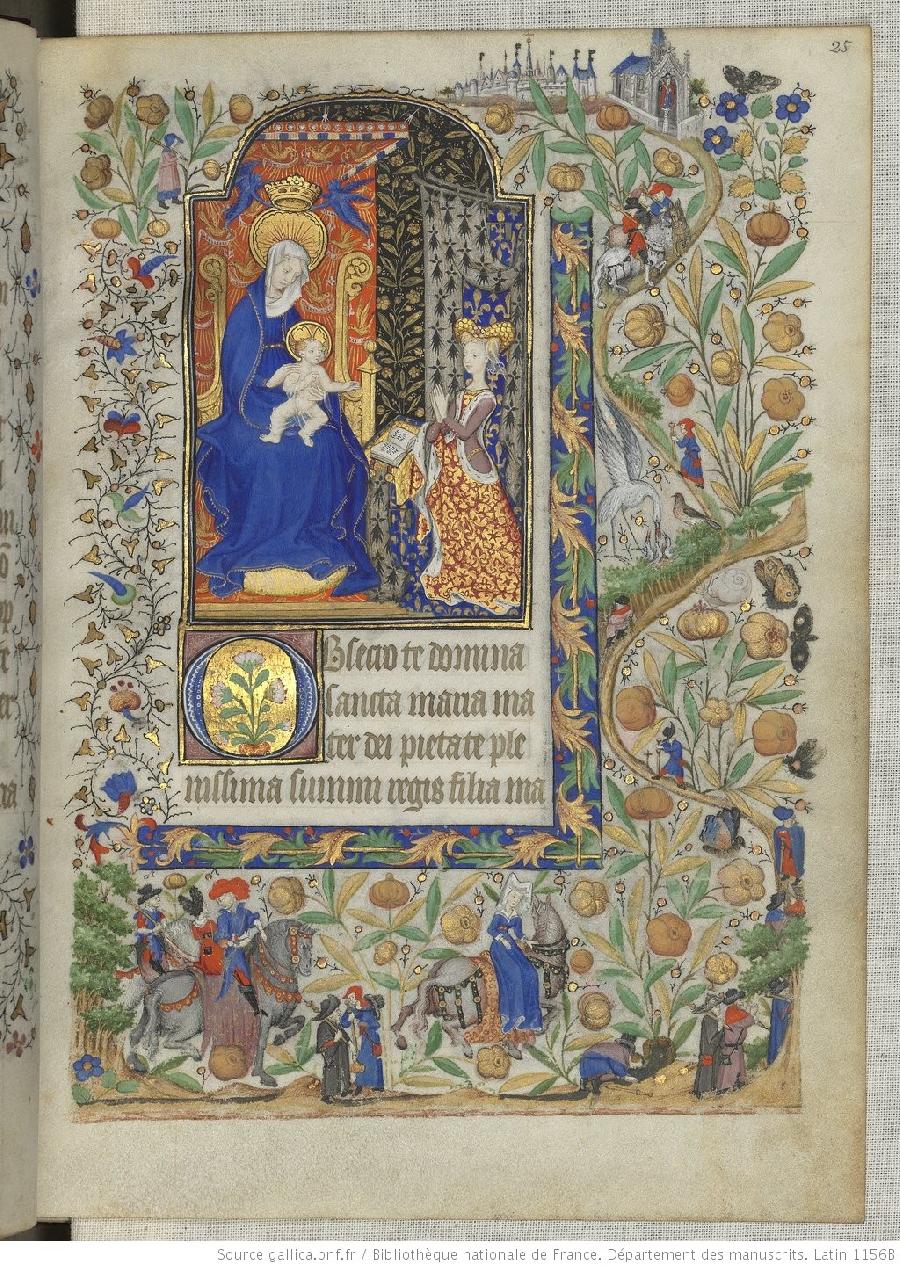 25
Obsecro te domina
sancta maria ma
ter dei pietate ple
nissima summi regis filia ma
Source gallica.bnf.fr / Bibliothèque nationale de France. Département des manuscrits. Latin 1156B